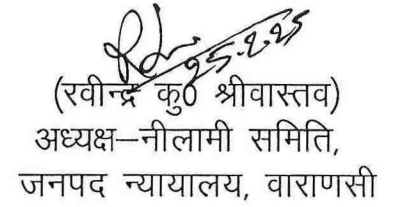 25.2.25
(रवीन्द्र कु0 श्रीवास्तव)
अध्यक्ष–नीलामी समिति,
जनपद न्यायालय, वाराणसी